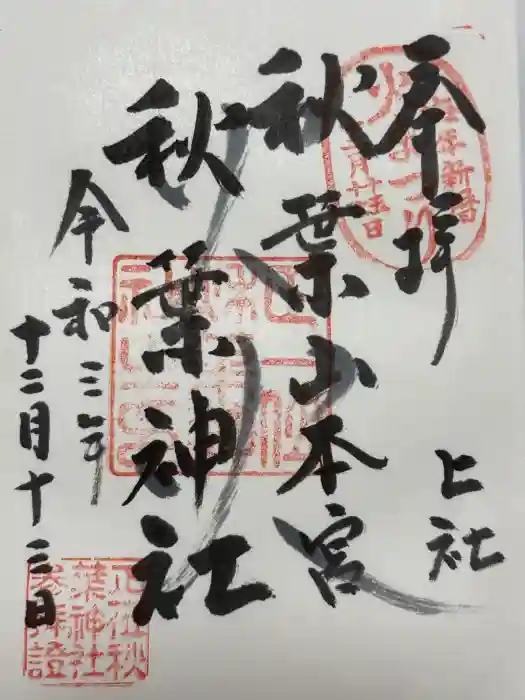 奉拝
上社
秋葉山本宮
秋葉神社
令和三年
十二月十三日
正一位秋
葉神社
参拝證